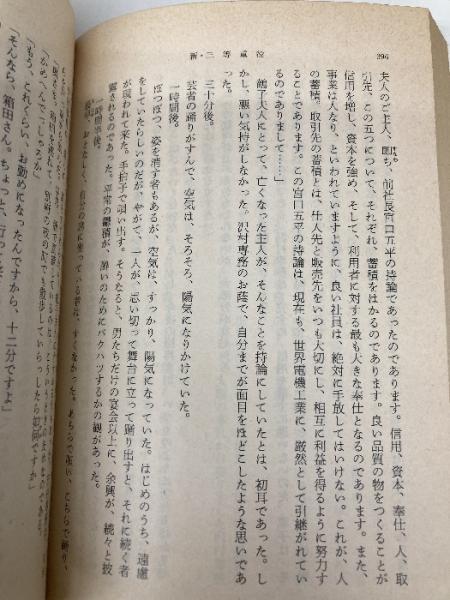 296
新・三等重役
夫人のご主人、即ち、前社長宮口五平の持論であったのであります。信用、資本、奉仕、人、取
引先、この五つについて、それぞれ、蓄積をはかるのであります。良い品質の物をつくることが
信用を増し、資本を強め、そして、利用者に対する最も大きな奉仕となるのであります。また、
事業は人なり、といわれていますように、良い社員は、絶対に手放してはいけない。これが、人
の蓄積。取引先の蓄積とは、仕入先と販売先をいつも大切にし、相互に利益を得るように努力す
るのでありまして。この宮口五平の持論は、現在も、世界電機工業に、厳然として引継がれてい
るのでありまして……」
鶴子夫人にとって、亡くなった主人が、そんなことを持論にしていたとは、初耳であった。し
かし、悪い気持がしなかった。沢村専務のお蔭で、自分までが面目をほどこしたような思いであ
った。
三十分後。
芸者の踊りがすんで、空気は、そろそろ、陽気になりかけていた。
一時間後。
ぼつぼつ、姿を消す者もあるが、空気は、すっかり、陽気になっていた。はじめのうち、遠慮
をしていたらしいのだが、やがて、一人が、思い切って舞台に立って踊り出すと、それに続く者
が現われて来た。手拍子で唄い出す。そうなると、男たちだけの宴会以上に、余興が、続々と披
露されるのであった。平常の鬱積が、酔いのためにバクハツするかの観があった。
一時間半後。
自分の席に坐っている者は、すくなかった。あちらで歌い、こちらで踊り、
「もう、これくらい、お勤めになったんですから、十二分ですよ」
「そんなら、箱田さん。ちょっと、行って